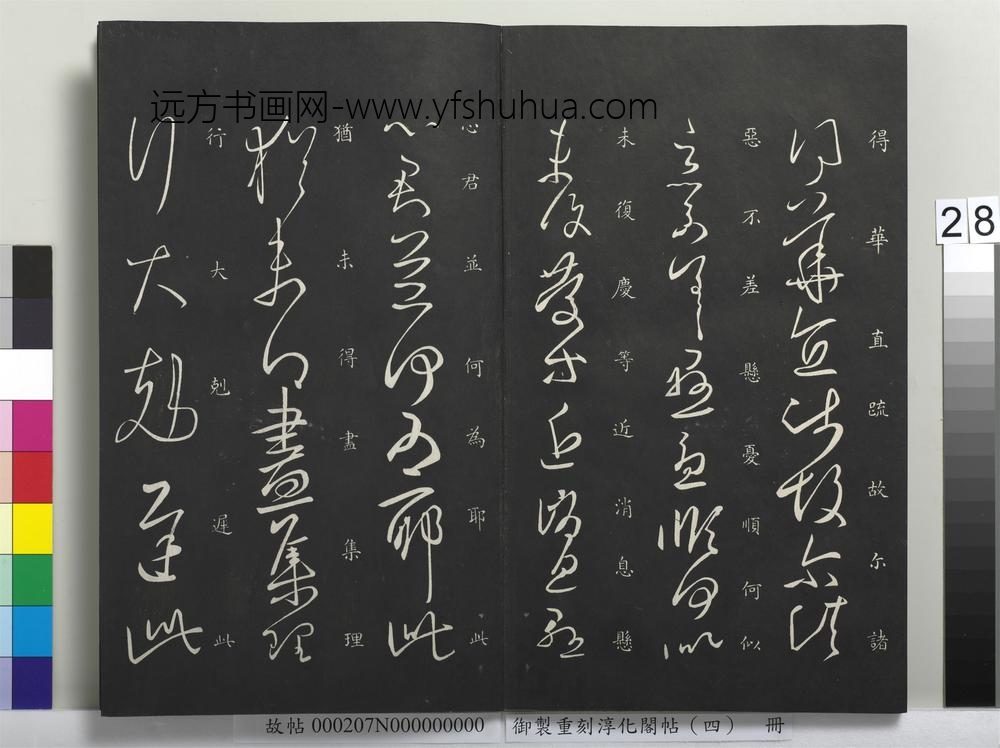 远方书画网-www.yfshuhua.com
得華直疏故尔諸
惡不差懸憂順何似
未復慶等近消息懸
心君並何為耶此
猶未得盡集理
行大剋遲此
28
故帖 000207N000000000 御製重刻淳化閣帖（四） 冊